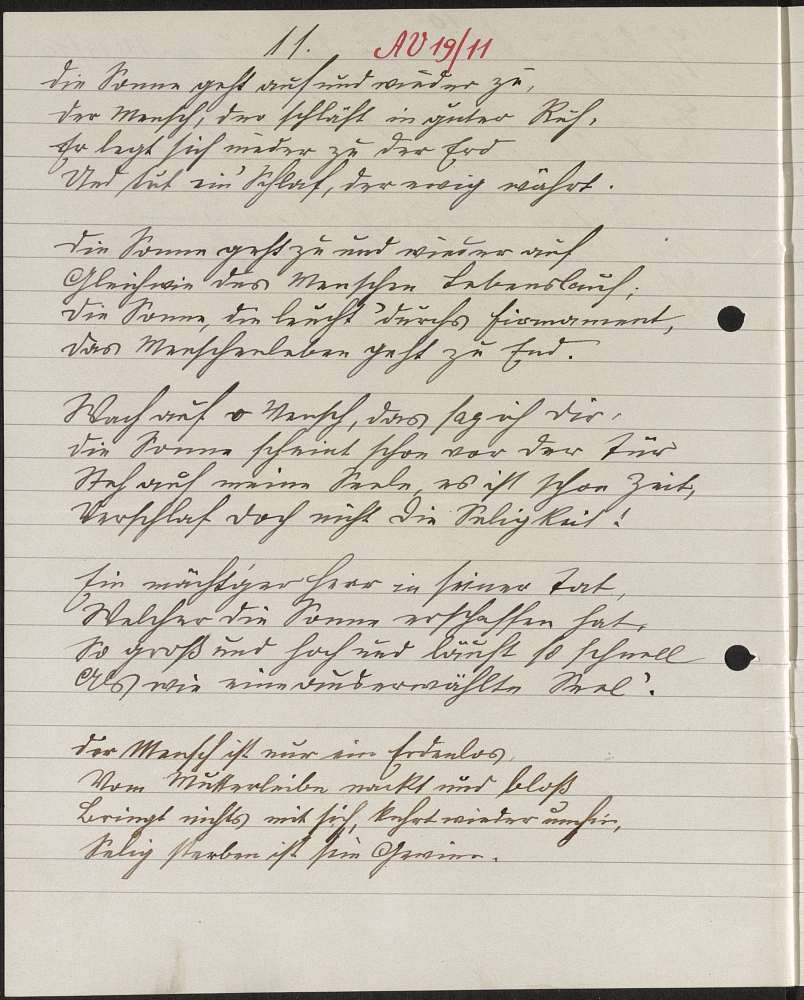 11. AV 19/11
Die Sonne geht auf und wieder zu,
Der Mensch, der schläft in guter Ruh,
Er legt sich nieder zu der Erd
Und tut ein' Schlaf, der ewig währt.
Die Sonne geht zu und wieder auf
Gleichwie des Menschen Lebenslauf;
Die Sonne, die leucht' durchs Firmament,
Das Menschenleben geht zu End.
Wach auf o Mensch, das sag ich dir,
Die Sonne scheint schon vor der Tür
Steh auf meine Seele, es ist schon Zeit,
Verschlaf doch nicht die Seligkeit!
Ein mächt'ger Herr in seiner Tat,
Welcher die Sonne erschaffen hat,
So groß und hoch und läuft so schnell
Als wie eine auserwählte Seel'.
Der Mensch ist nur ein Erdenlos,
Vom Mutterleibe nackt und bloß
Bringt nichts mit sich, kehrt wieder umhin,
Selig sterben ist sein Gewinn.